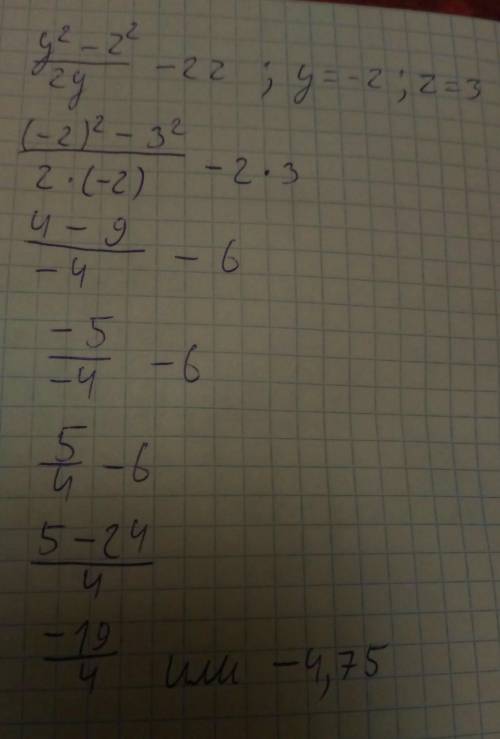 (y² - z²)/(2y) - 2z ; y = -2 ; z = 3
((-2)² - 3²)/(2 · (-2)) - 2 · 3
(4 - 9)/(-4) - 6
(-5)/(-4) - 6
5/4 - 6
(5 - 24)/4
(-19)/4 или -4,75